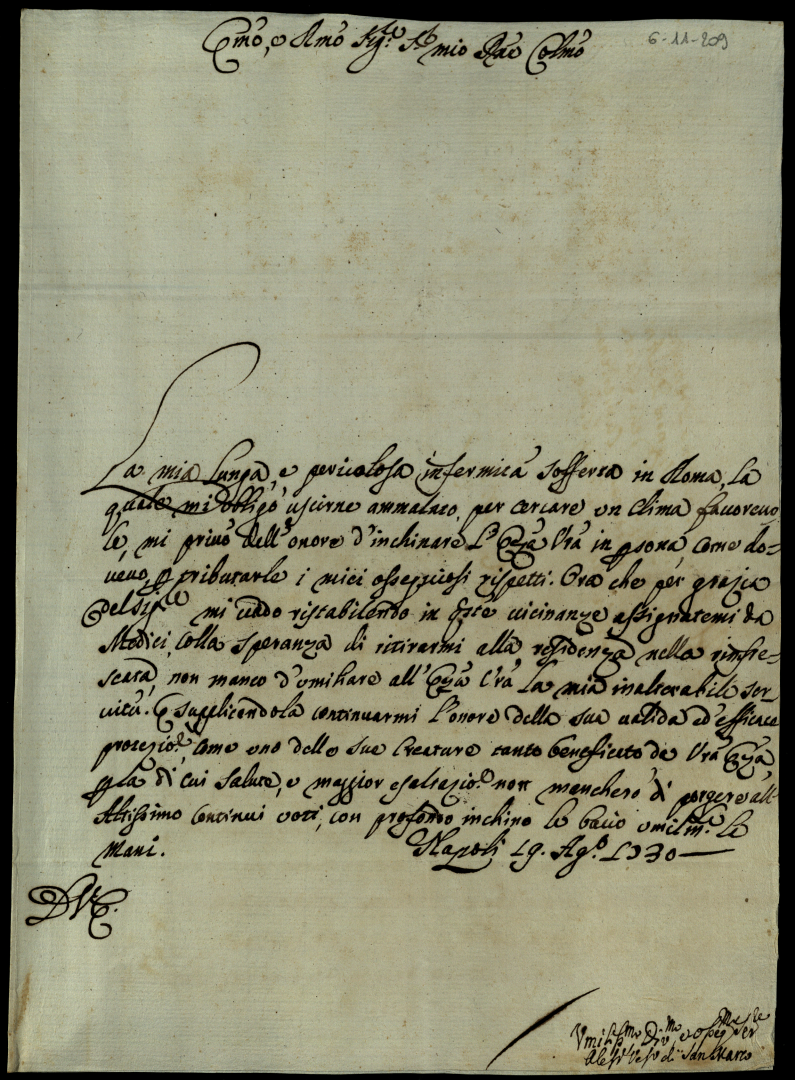 Emõ, e Rmõ Sig.re S.r mio Pne Colmõ
6-11-209
La mia Lunga, e pericolosa infermità sofferta in Roma, la
quale mi obligò uscirne ammalato, per cercare un clima favorevo
le, mi privò dell'onore d'inchinare L'Emza Vrã in psona come do=
vevo, e tributarle i miei ossequiosi rispetti. Ora che per grazia
del Sig.re mi vedo ristabilendo in Este vicinanze assignatemi da
Medici, colla speranza di ritirarmi alla residenza nella rinfre=
scata, non manco d'umiliare all'Emza Vrã la mia inalterabile ser=
vitù. E supplicandola continuarmi l'onore della sua valida ed'efficace
protezio.e, come uno delle sue Creature tanto beneficato da Vrã Emza
p la di cui salute, e maggior esaltazio.e non mancherò di porgere all'
Altissimo continui voti, con profondo inchino le bacio umilm.te le
Mani. Napoli 19. Ag.o 1730
D V E.
Umiliss.mo Div.mo ed osseq.mo Ser.re
Vesc.o di San Marco